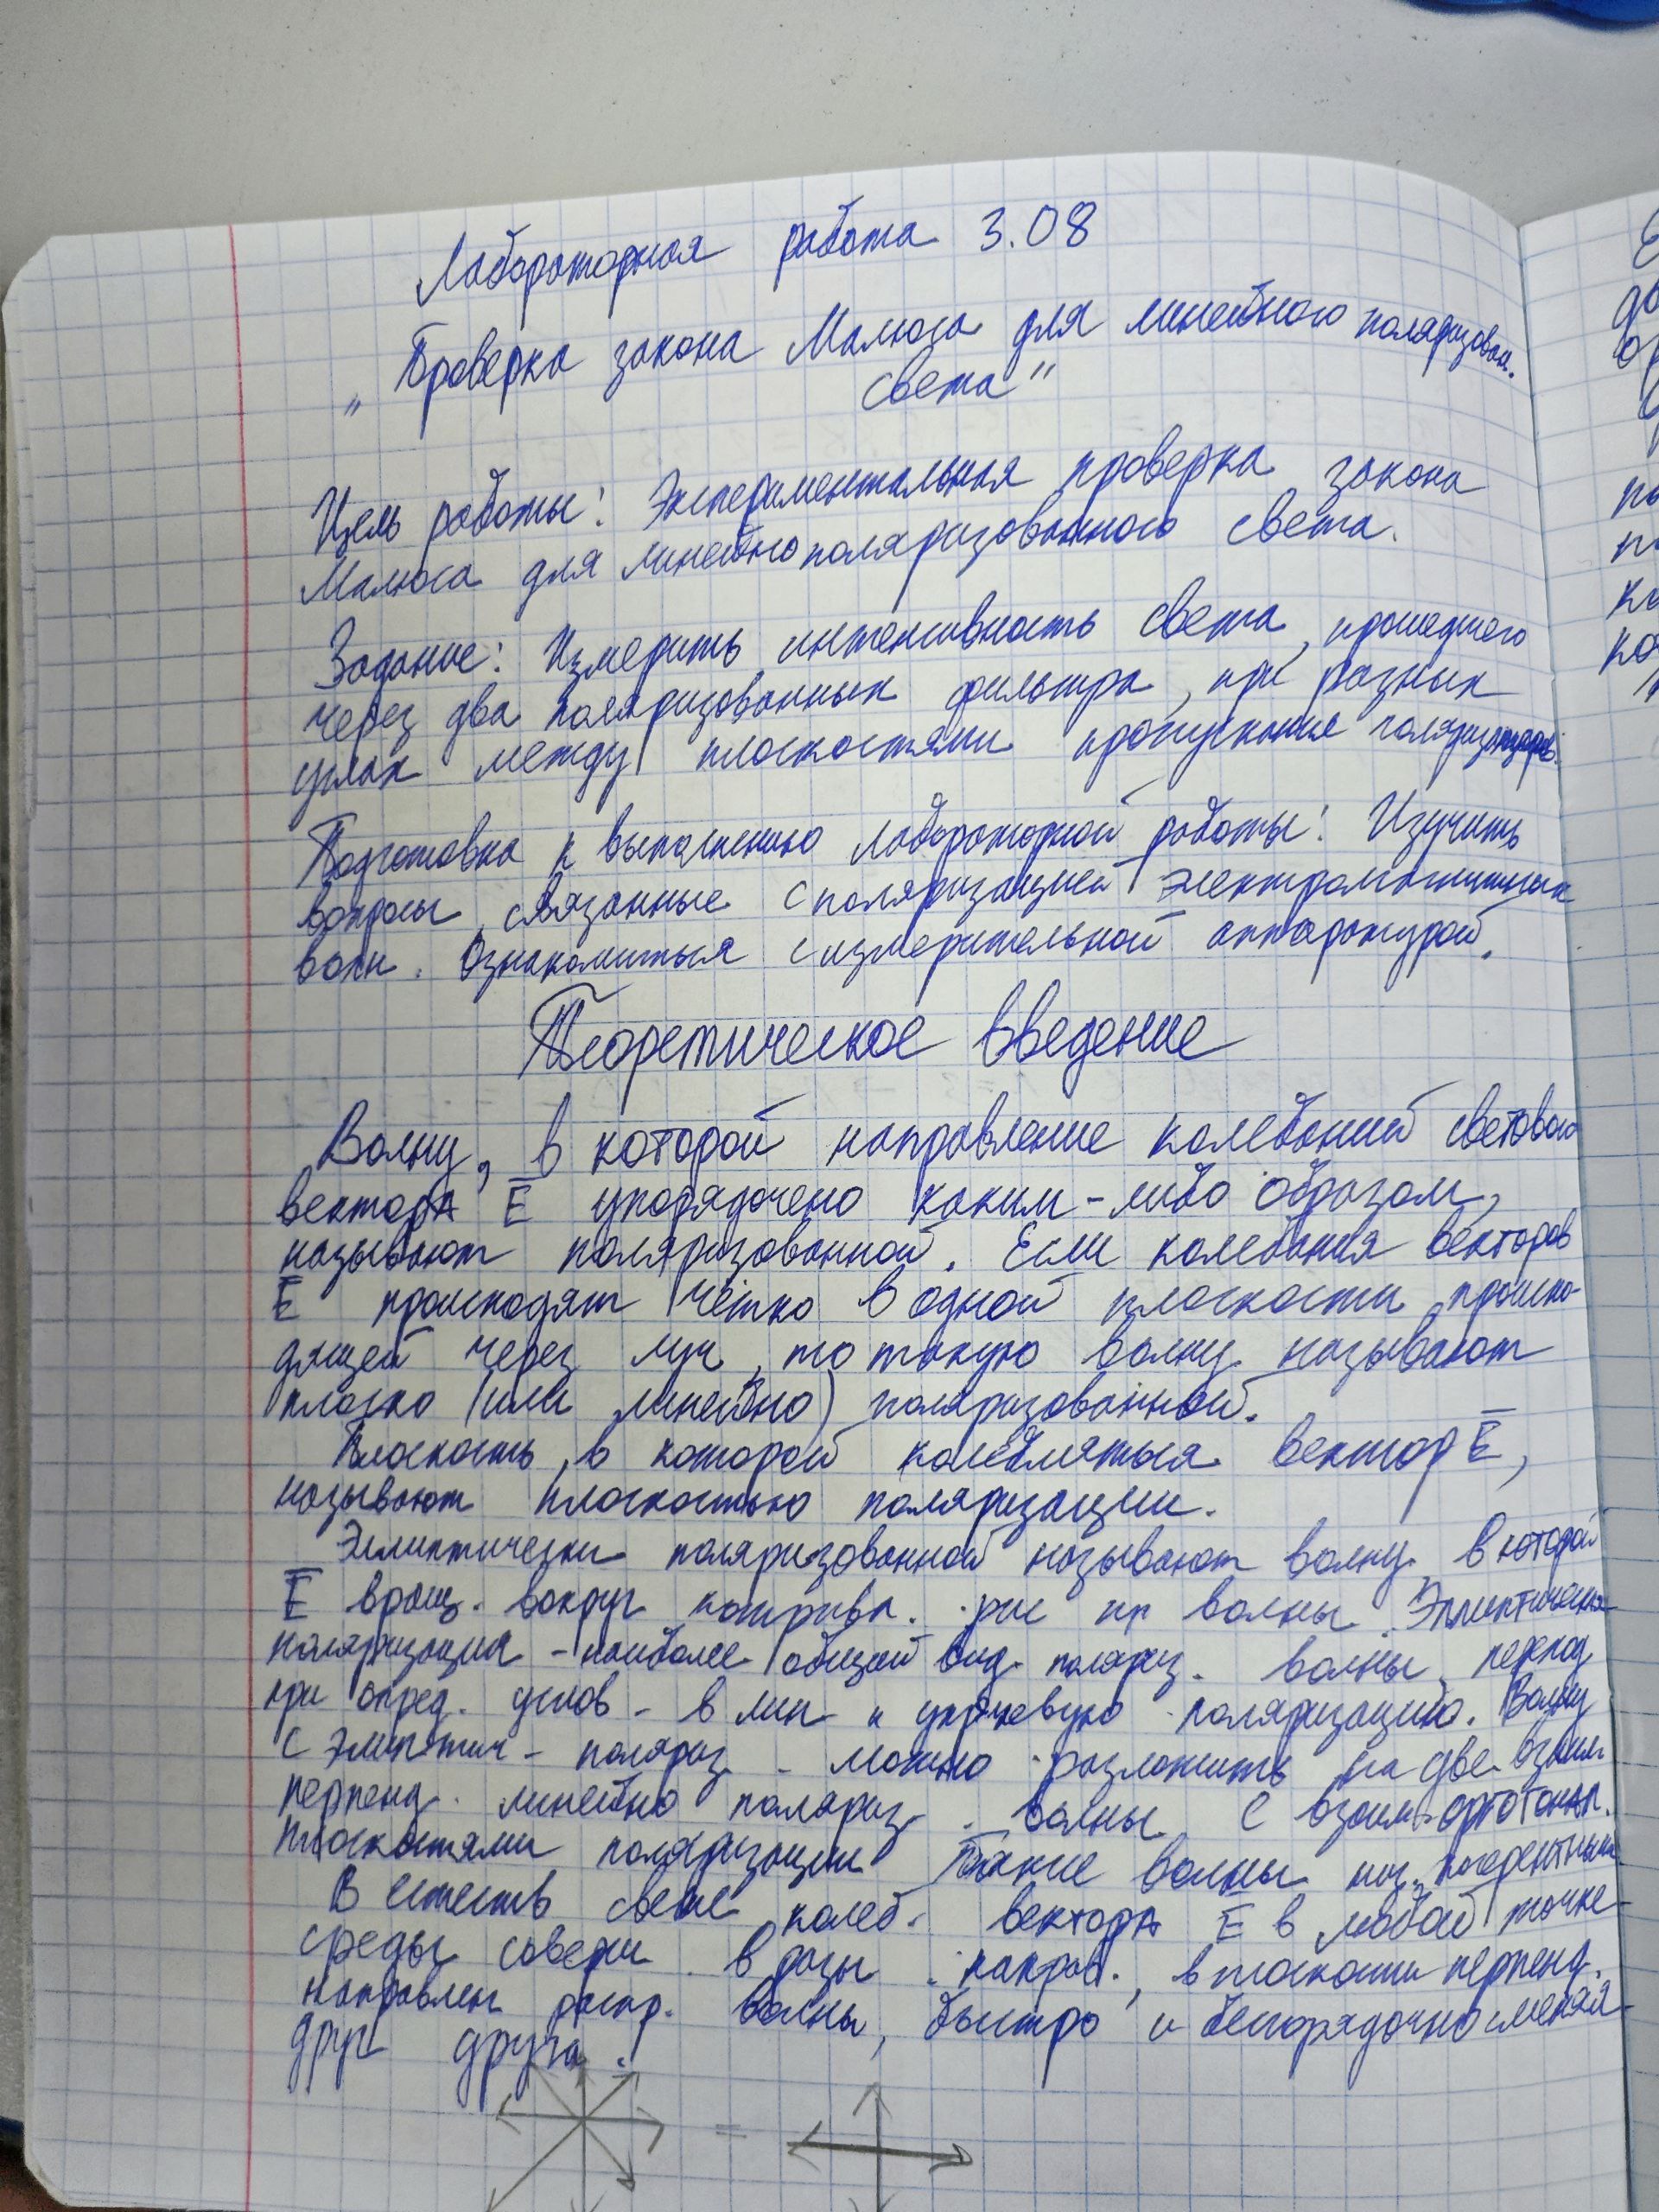 Лабораторная работа 3.08
„Проверка закона Малюса для линейного поляризован.
света"
Цель работы: Экспериментальная проверка закона
Малюса для линейнополяризованного света.
Задание: Измерить интенсивность света, прошедшего
через два поляризованных фильтра, при разных
углах между плоскостями пропускания поляризаторов.
Подготовка к выполнению лабораторной работы: Изучить
вопросы, связанные с поляризацией электромагнитных
волн. Ознакомиться с измерительной аппаратурой.
Теоретическое введение
Волну, в которой направление колебаний светового
вектора E упорядочено каким-либо образом,
называют поляризованной. Если колебания векторов
E происходят чётко в одной плоскости, происхо-
дящей через луч, то такую волну называют
плоско (или линейно) поляризованной.
Плоскость, в которой колебляться вектор E,
называют плоскостью поляризации.
Эллиптически поляризованной называют волну, в которой
E вращ. вокруг волны. Эллиптическая
поляризация - наиболее общий вид поляриз. волны, переход
при опред. услов. в лин и поляризацию. Волну
с эллиптич. поляриз. можно разложить на две взаим.
перпенд. линейно поляриз. волны с взаим. ортогонал.
плоскостями поляризации. Такие волны наз. когерентными
В естеств свете колеб. вектора E в любой точке
среды соверш в разн. направ., в плоскости перпенд.
направлен распр. волны, быстро и беспорядочно сменяя
друг друга.
=